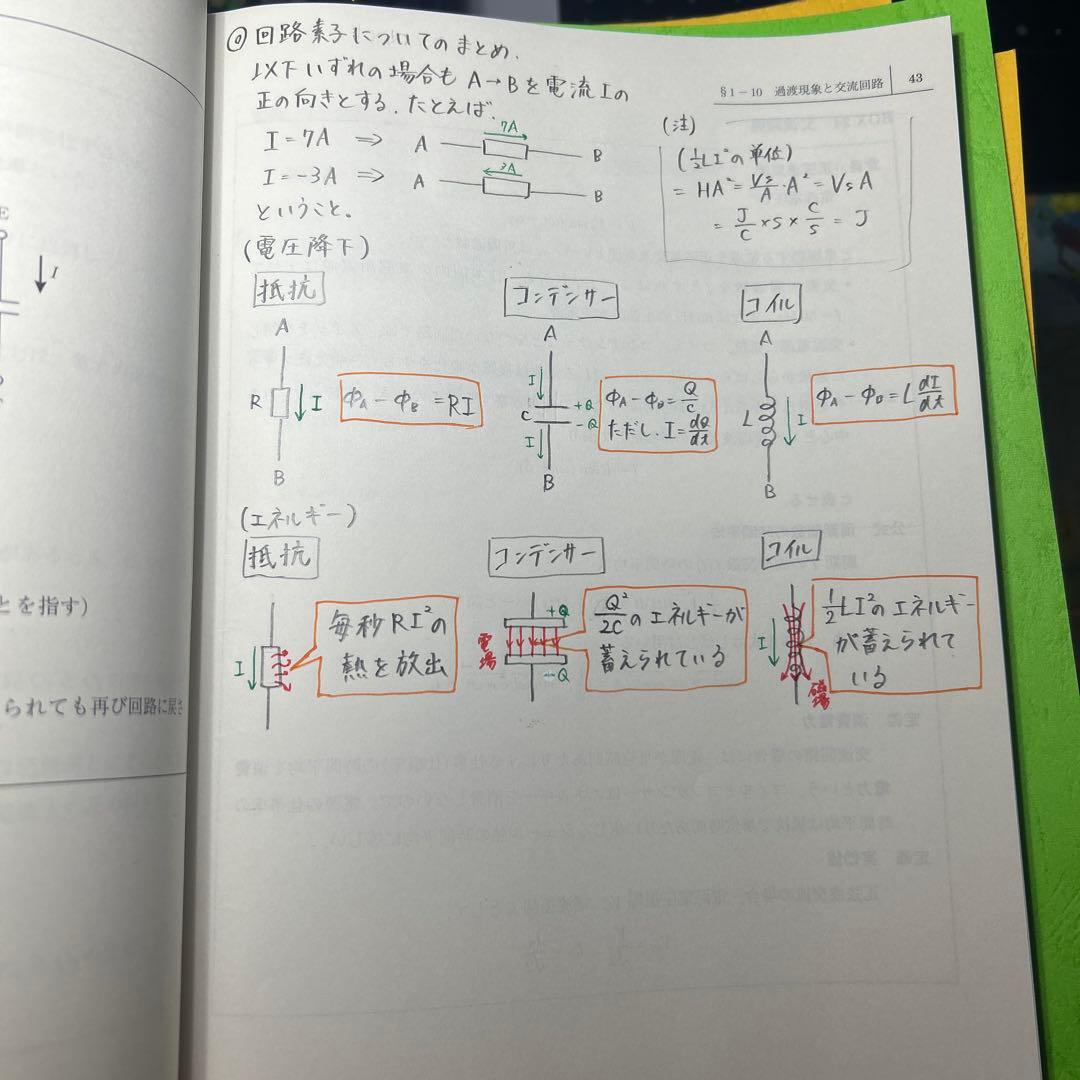 §1−10 過渡現象と交流回路 43
◎回路素子についてのまとめ.
以下いずれの場合も A→Bを電流Iの
正の向きとする. たとえば.
I=7A ⇒ A 7A B
I=−3A ⇒ A 3A B
ということ。
(注)
(½LI²の単位)
= HA² = Vs/A・A² = VsA
= J/C × s × C/s = J
(電圧降下)
抵抗
A
R I
B
Φ_A − Φ_B = RI
コンデンサー
A
I
C +Q
−Q
I
B
Φ_A − Φ_B = Q/C
ただし. I = dQ/dt
コイル
A
L I
B
Φ_A − Φ_B = L dI/dt
(エネルギー)
抵抗
I
毎秒RI²の
熱を放出
コンデンサー
+Q
電場
−Q
Q²/2C のエネルギーが
蓄えられている
コイル
I
磁場
½LI²のエネルギー
が蓄えられて
いる
E
I
とを指す)
られても再び回路に戻さ